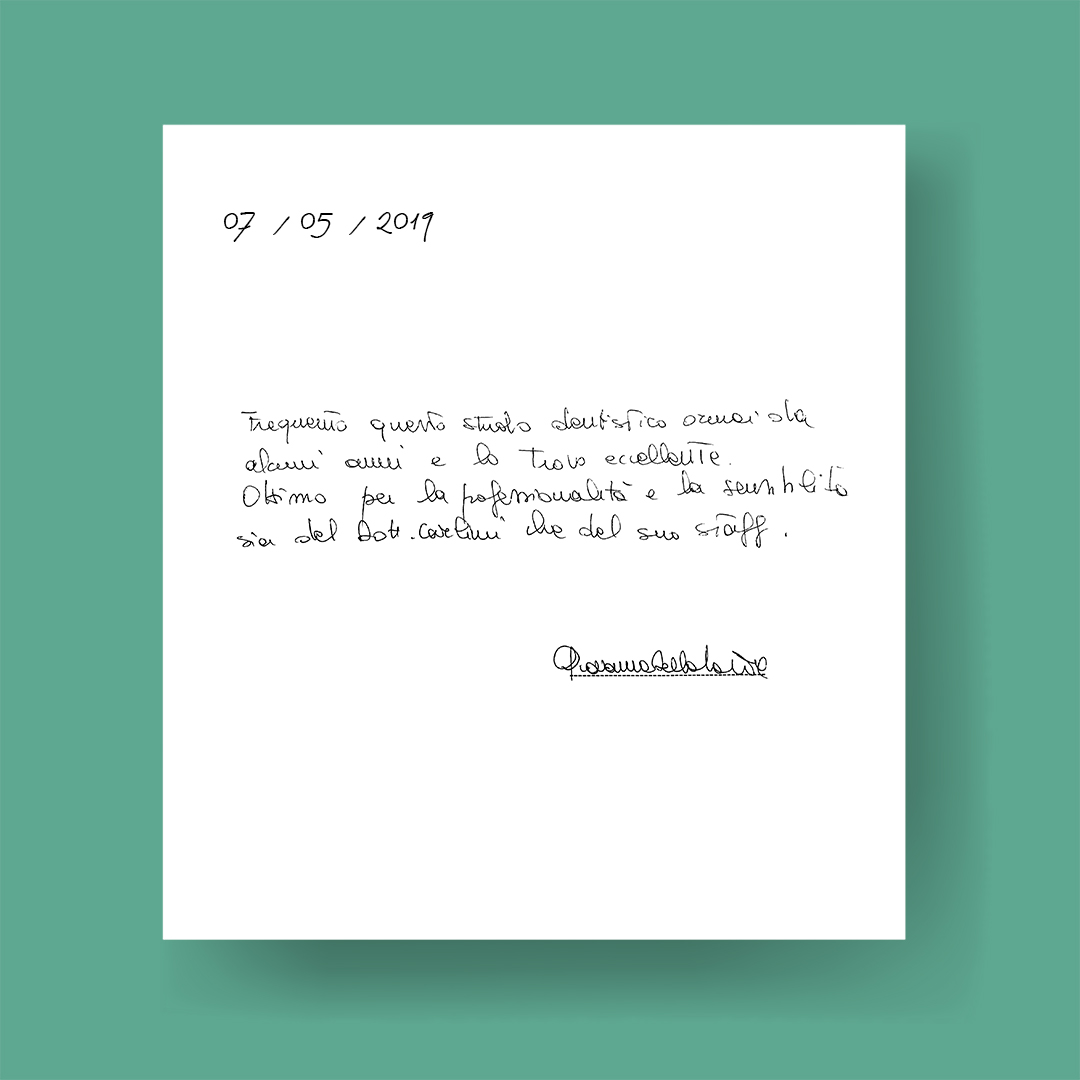 07 / 05 / 2019
Frequento questo studio dentistico ormai da
alcuni anni e lo trovo eccellente.
Ottimo per la professionalità e la sensibilità
sia del Dott. Carlini che del suo staff.